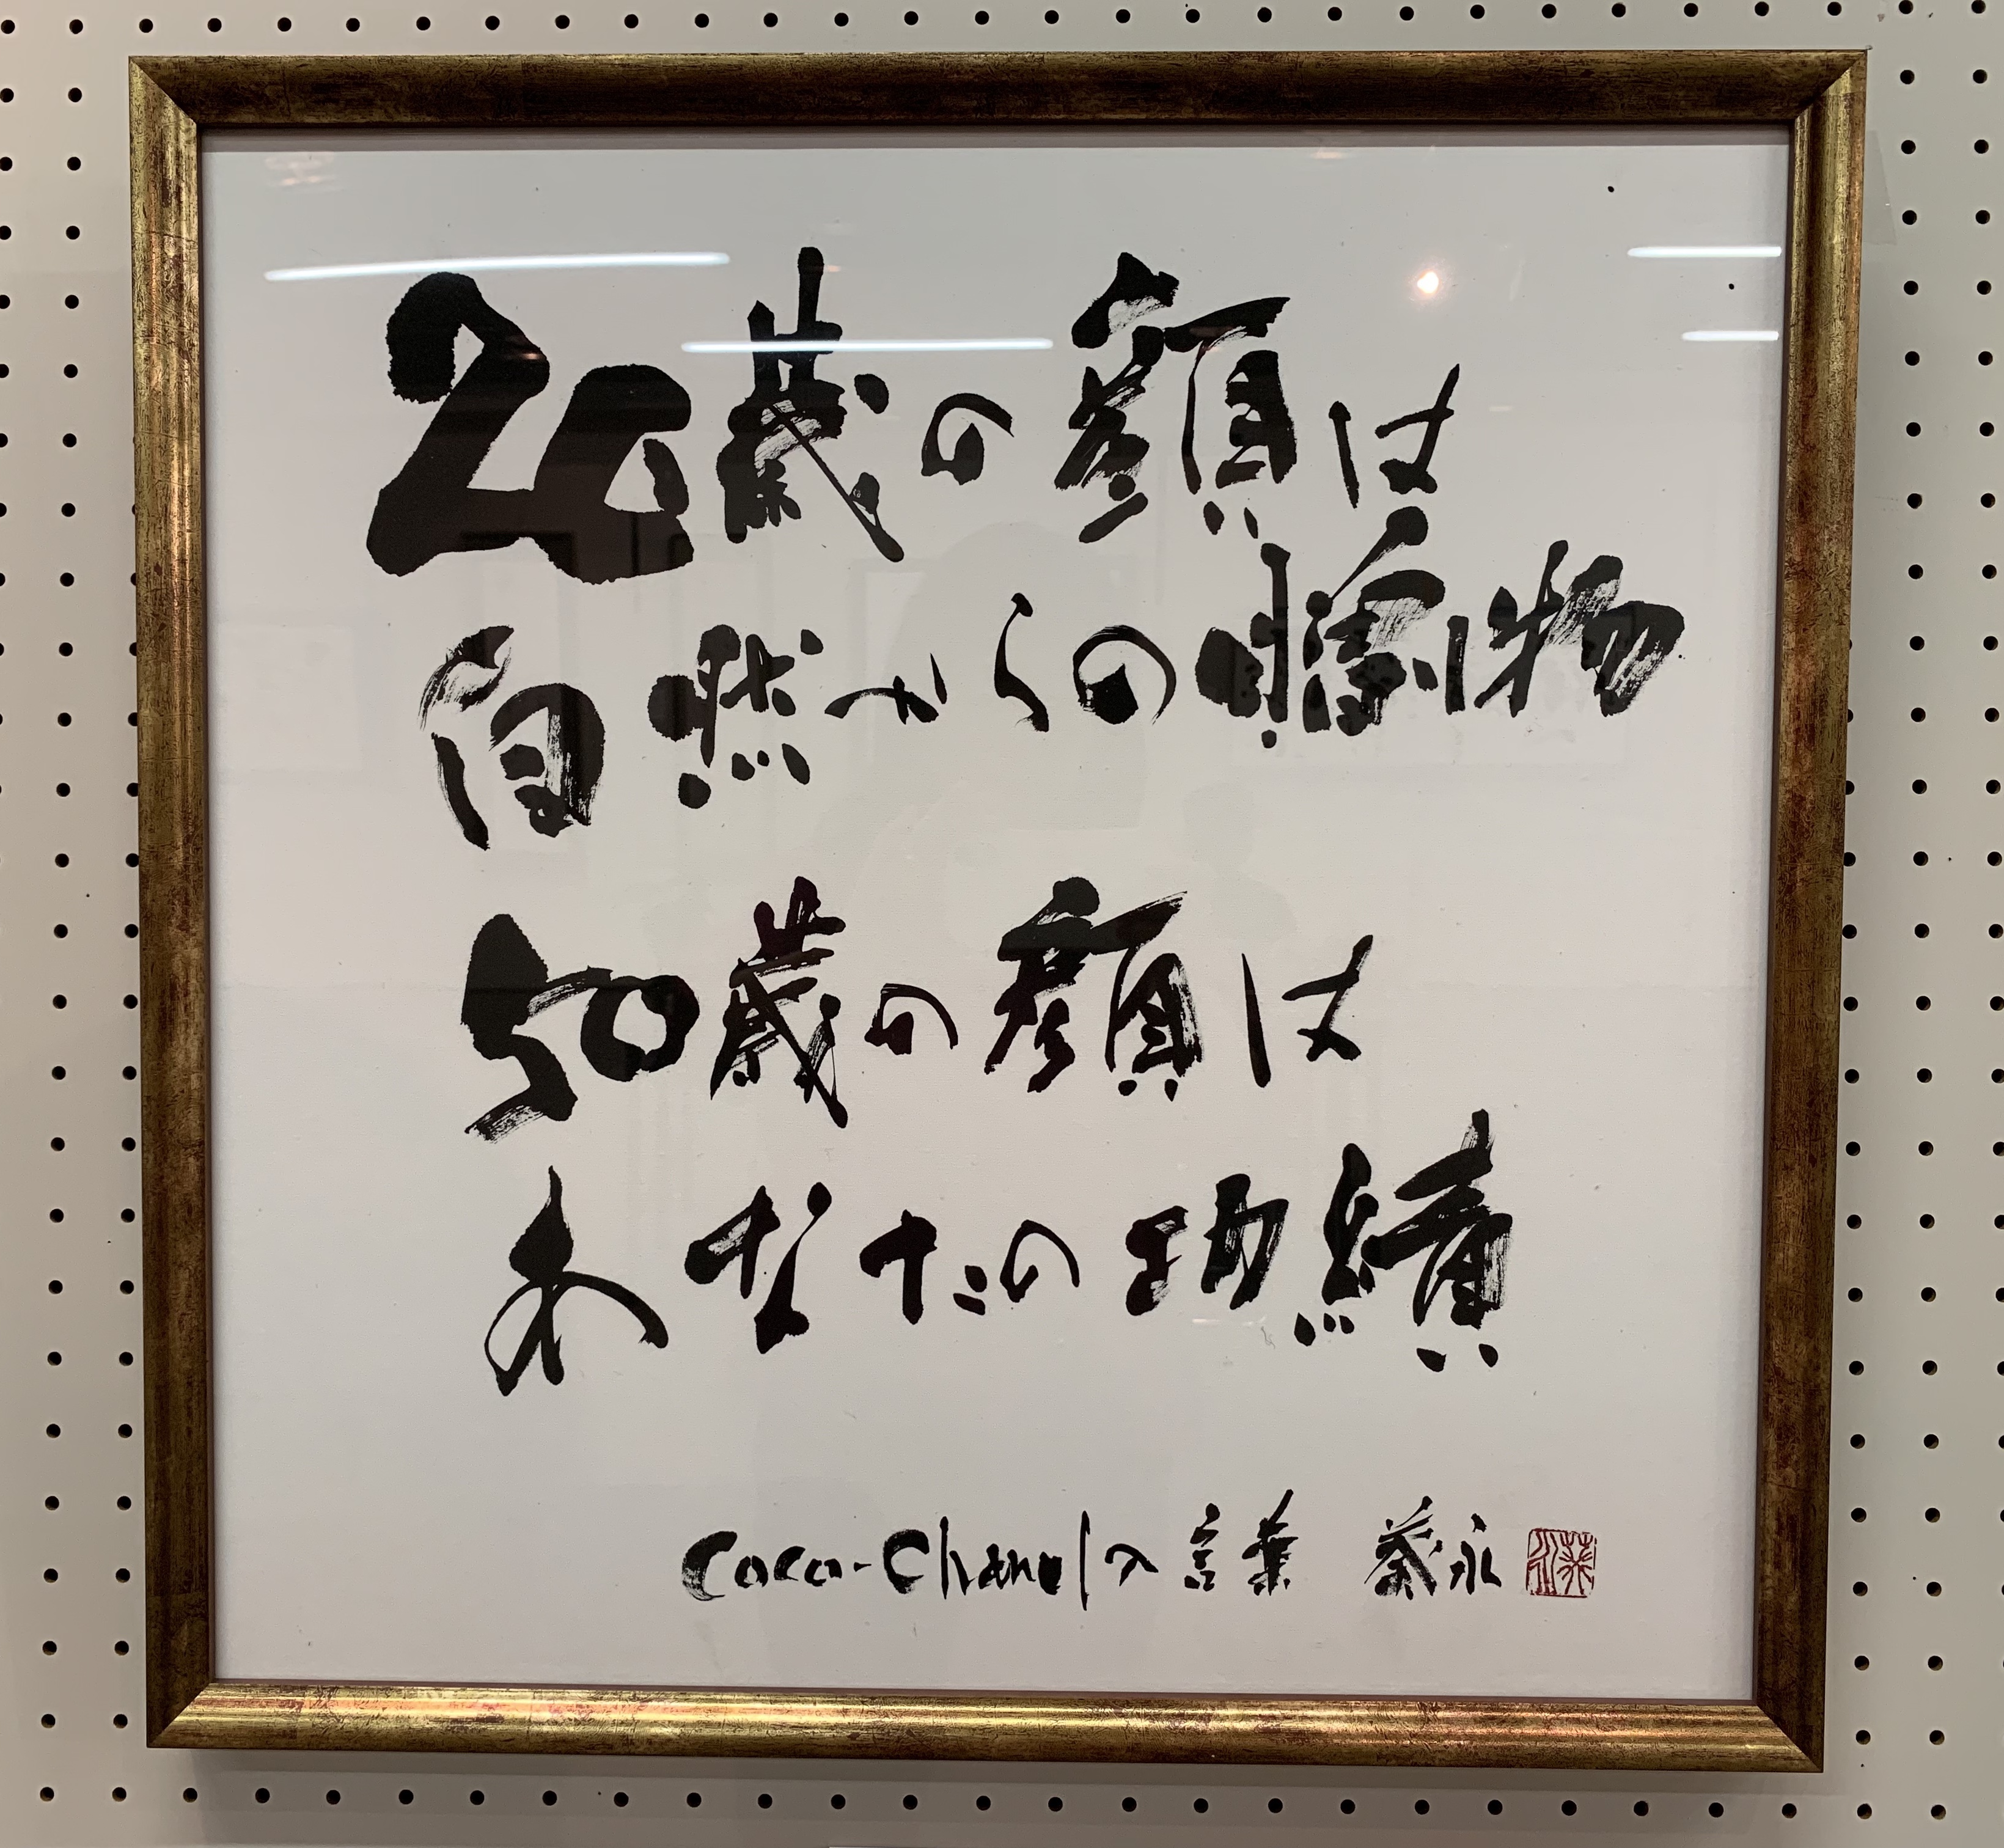 20歳の顔は
自然からの贈物
50歳の顔は
あなたの功績
Coco-Chanelの言葉 葵永